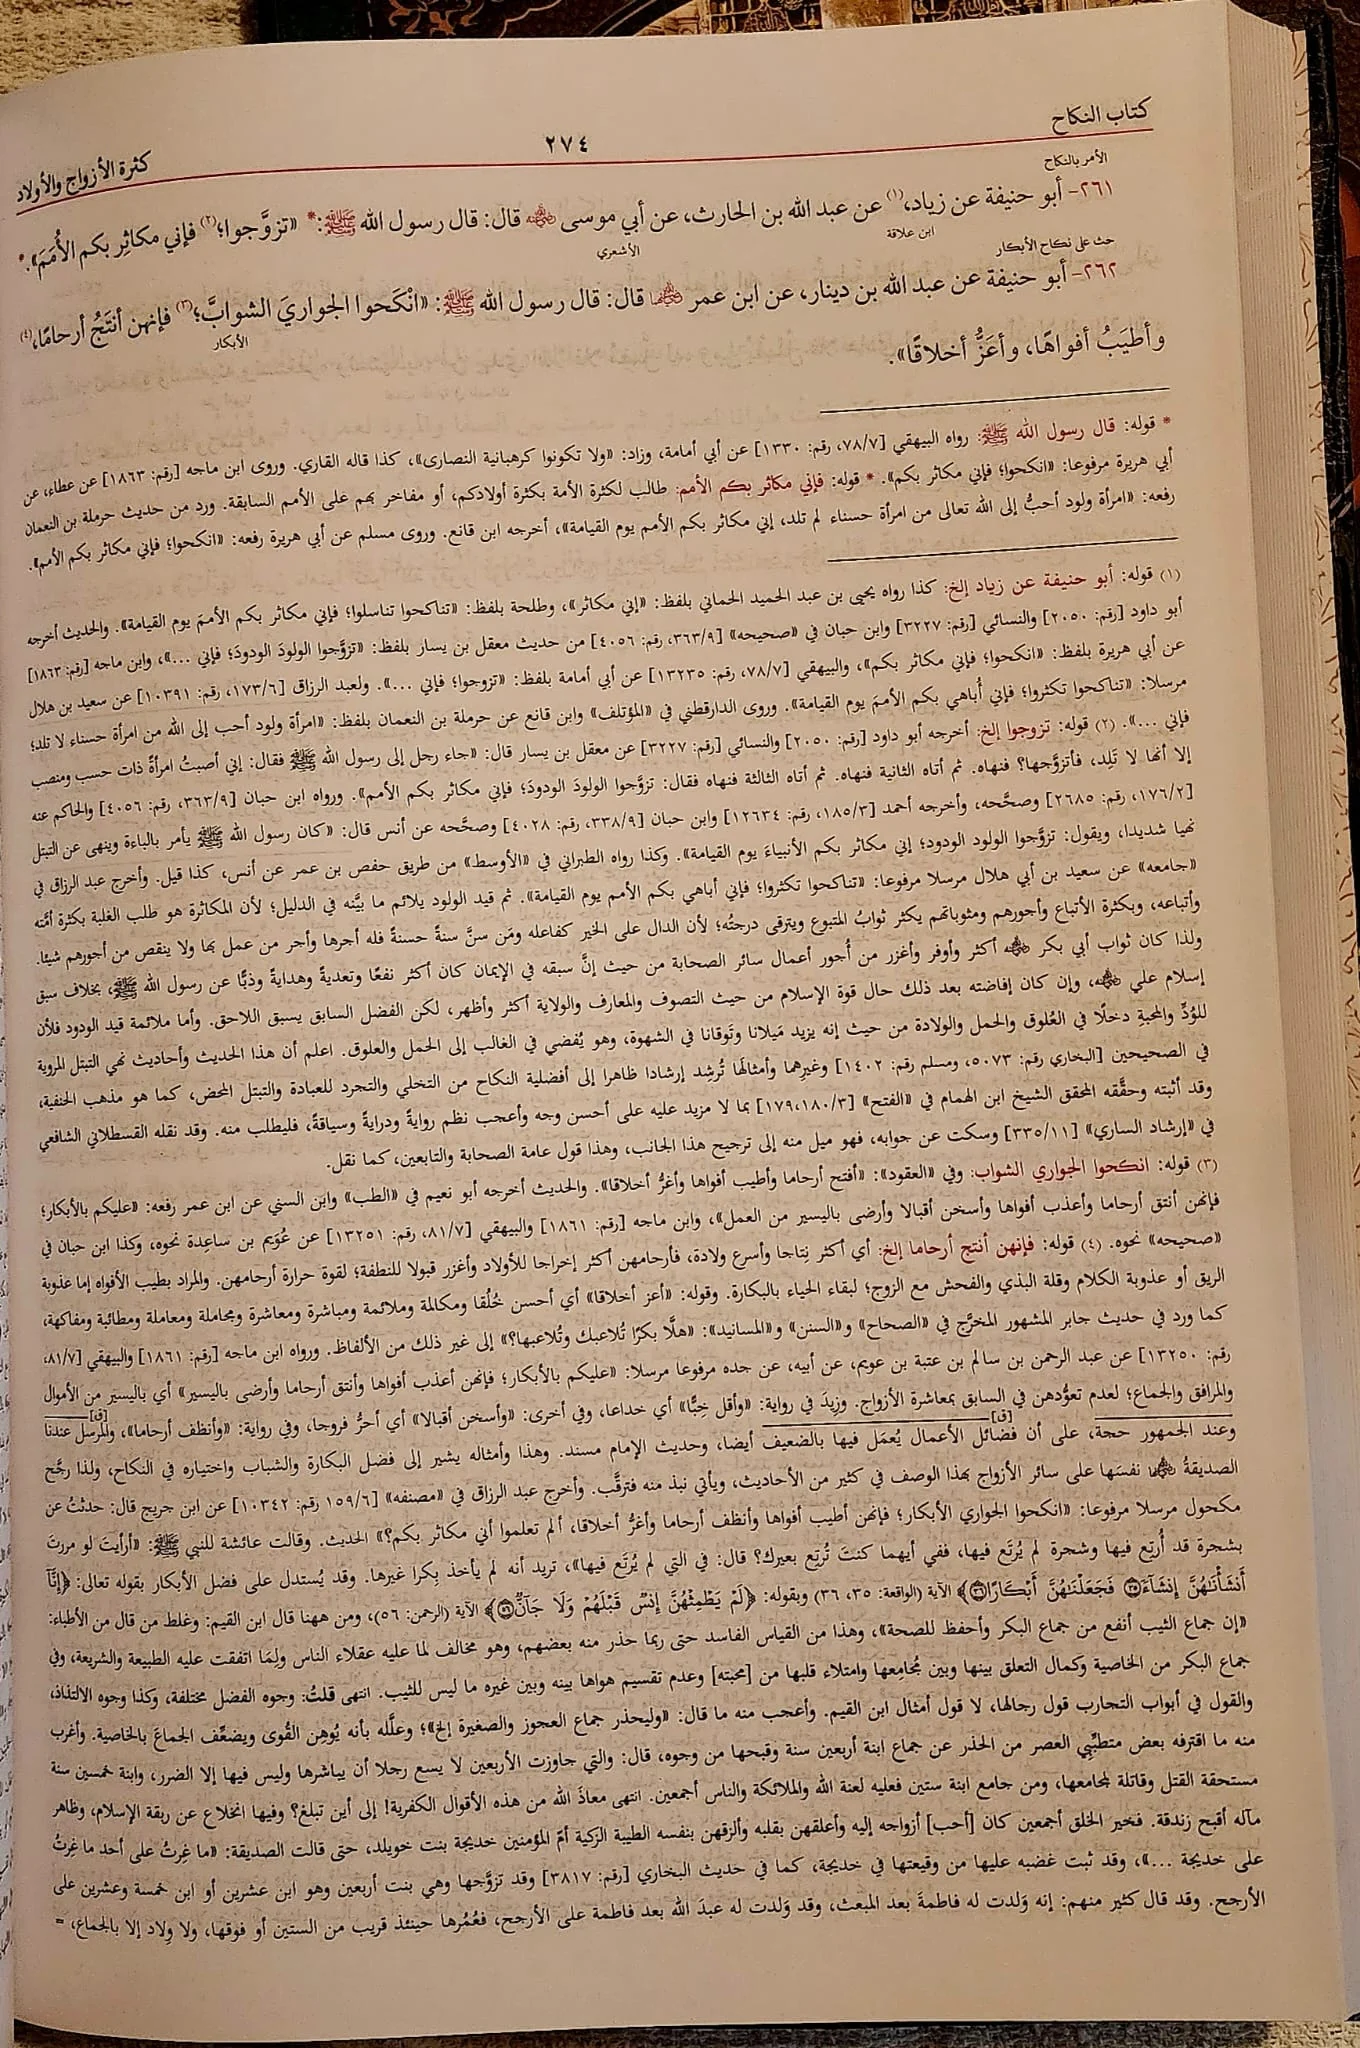 كتاب النكاح
٢٧٤
كثرة الأزواج والأولاد
الأمر بالنكاح
٢٦١- أبو حنيفة عن زياد،(١) عن عبد الله بن الحارث، عن أبي موسى ﵁ قال: قال رسول الله ﷺ:* «تزوَّجوا؛(٢) فإني مكاثِر بكم الأُمَمَ».*
ابن علاقة
الأشعري
حث على نكاح الأبكار
٢٦٢- أبو حنيفة عن عبد الله بن دينار، عن ابن عمر ﵄ قال: قال رسول الله ﷺ: «انْكَحوا الجواريَ الشوابَّ؛(٣) فإنهن أنتَجُ أرحامًا،(٤)
الأبكار
وأطيَبُ أفواهًا، وأعَزُّ أخلاقًا».
* قوله: قال رسول الله ﷺ: رواه البيهقي [٧٨/٧، رقم: ١٣٣٠] عن أبي أمامة، وزاد: «ولا تكونوا كرهبانية النصارى»، كذا قاله القاري. وروى ابن ماجه [رقم: ١٨٦٣] عن عطاء، عن
أبي هريرة مرفوعا: «انكحوا؛ فإني مكاثر بكم». * قوله: فإني مكاثر بكم الأمم: طالب لكثرة الأمة بكثرة أولادكم، أو مفاخر بهم على الأمم السابقة. ورد من حديث حرملة بن النعمان
رفعه: «امرأة ولود أحبُّ إلى الله تعالى من امرأة حسناء لم تلد، إني مكاثر بكم الأمم يوم القيامة»، أخرجه ابن قانع. وروى مسلم عن أبي هريرة رفعه: «انكحوا؛ فإني مكاثر بكم الأمم».
(١) قوله: أبو حنيفة عن زياد إلخ: كذا رواه يحيى بن عبد الحميد الحماني بلفظ: «إني مكاثر»، وطلحة بلفظ: «تناكحوا تناسلوا؛ فإني مكاثر بكم الأممَ يوم القيامة». والحديث أخرجه
أبو داود [رقم: ٢٠٥٠] والنسائي [رقم: ٣٢٢٧] وابن حبان في «صحيحه» [٣٦٣/٩، رقم: ٤٠٥٦] من حديث معقل بن يسار بلفظ: «تزوَّجوا الولودَ الودودَ؛ فإني ...»، وابن ماجه [رقم: ١٨٦٣]
عن أبي هريرة بلفظ: «انكحوا؛ فإني مكاثر بكم»، والبيهقي [٧٨/٧، رقم: ١٣٢٣٥] عن أبي أمامة بلفظ: «تزوجوا؛ فإني ...». ولعبد الرزاق [١٧٣/٦، رقم: ١٠٣٩١] عن سعيد بن هلال
مرسلا: «تناكحوا تكثروا؛ فإني أُباهي بكم الأممَ يوم القيامة». وروى الدارقطني في «المؤتلف» وابن قانع عن حرملة بن النعمان بلفظ: «امرأة ولود أحب إلى الله من امرأة حسناء لا تلد؛
فإني ...». (٢) قوله: تزوجوا إلخ: أخرجه أبو داود [رقم: ٢٠٥٠] والنسائي [رقم: ٣٢٢٧] عن معقل بن يسار قال: «جاء رجل إلى رسول الله ﷺ فقال: إني أصبتُ امرأةً ذات حسب ومنصب
إلا أنها لا تَلِد، فأتزوَّجها؟ فنهاه. ثم أتاه الثانية فنهاه. ثم أتاه الثالثة فنهاه فقال: تزوَّجوا الولودَ الودودَ؛ فإني مكاثر بكم الأمم». ورواه ابن حبان [٣٦٣/٩، رقم: ٤٠٥٦] والحاكم عنه
[١٧٦/٢، رقم: ٢٦٨٥] وصحَّحه، وأخرجه أحمد [١٨٥/٣، رقم: ١٢٦٣٤] وابن حبان [٣٣٨/٩، رقم: ٤٠٢٨] وصحَّحه عن أنس قال: «كان رسول الله ﷺ يأمر بالباءة وينهى عن التبتل
نهيا شديدا، ويقول: تزوَّجوا الولود الودود؛ إني مكاثر بكم الأنبياءَ يوم القيامة». وكذا رواه الطبراني في «الأوسط» من طريق حفص بن عمر عن أنس، كذا قيل. وأخرج عبد الرزاق في
«جامعه» عن سعيد بن أبي هلال مرسلا مرفوعا: «تناكحوا تكثروا؛ فإني أباهي بكم الأمم يوم القيامة». ثم قيد الولود يلائم ما بيَّنه في الدليل؛ لأن المكاثرة هو طلب الغلبة بكثرة أمَّته
وأتباعه، وبكثرة الأتباع وأجورهم ومثوباتهم يكثر ثوابُ المتبوع ويترقى درجتُه؛ لأن الدال على الخير كفاعله ومَن سنَّ سنةً حسنةً فله أجرها وأجر من عمل بها ولا ينقص من أجورهم شيئا.
ولذا كان ثواب أبي بكر ﵁ أكثر وأوفر وأغزر من أُجور أعمال سائر الصحابة من حيث إنَّ سبقه في الإيمان كان أكثر نفعًا وتعديةً وهدايةً وذبًّا عن رسول الله ﷺ، بخلاف سبق
إسلام علي ﵁، وإن كان إفاضته بعد ذلك حال قوة الإسلام من حيث التصوف والمعارف والولاية أكثر وأظهر، لكن الفضل السابق يسبق اللاحق. وأما ملائمة قيد الودود فلأن
للوُدِّ والمحبةِ دخلًا في العُلوق والحمل والولادة من حيث إنه يزيد مَيلانا وتَوقانا في الشهوة، وهو يُفضي في الغالب إلى الحمل والعلوق. اعلم أن هذا الحديث وأحاديث نهي التبتل المروية
في الصحيحين [البخاري رقم: ٥٠٧٣، ومسلم رقم: ١٤٠٢] وغيرِهما وأمثالَها تُرشِد إرشادا ظاهرا إلى أفضلية النكاح من التخلي والتجرد للعبادة والتبتل المحض، كما هو مذهب الحنفية،
وقد أثبته وحقَّقه المحقق الشيخ ابن الهمام في «الفتح» [١٧٩،١٨٠/٣] بما لا مزيد عليه على أحسن وجه وأعجب نظم روايةً ودرايةً وسياقةً، فليطلب منه. وقد نقله القسطلاني الشافعي
في «إرشاد الساري» [٣٣٥/١١] وسكت عن جوابه، فهو ميل منه إلى ترجيح هذا الجانب، وهذا قول عامة الصحابة والتابعين، كما نقل.
(٣) قوله: انكحوا الجواري الشواب: وفي «العقود»: «أفتح أرحاما وأطيب أفواها وأغرُّ أخلاقا». والحديث أخرجه أبو نعيم في «الطب» وابن السني عن ابن عمر رفعه: «عليكم بالأبكار؛
فإنهن أنتق أرحاما وأعذب أفواها وأسخن أقبالا وأرضى باليسير من العمل»، وابن ماجه [رقم: ١٨٦١] والبيهقي [٨١/٧، رقم: ١٣٢٥١] عن عُوَيم بن ساعِدة نحوه، وكذا ابن حبان في
«صحيحه» نحوه. (٤) قوله: فإنهن أنتج أرحاما إلخ: أي أكثر نِتاجا وأسرع ولادة، فأرحامهن أكثر إخراجا للأولاد وأغزر قبولا للنطفة؛ لقوة حرارة أرحامهن. والمراد بطيب الأفواه إما عذوبة
الريق أو عذوبة الكلام وقلة البذي والفحش مع الزوج؛ لبقاء الحياء بالبكارة. وقوله: «أعز أخلاقا» أي أحسن خُلُقا ومكالمة وملائمة ومباشرة ومعاشرة ومجاملة ومعاملة ومطائبة ومفاكهة،
كما ورد في حديث جابر المشهور المخرَّج في «الصحاح» و«السنن» و«المسانيد»: «هلَّا بكرًا تُلاعبك وتُلاعبها؟» إلى غير ذلك من الألفاظ. ورواه ابن ماجه [رقم: ١٨٦١] والبيهقي [٨١/٧،
رقم: ١٣٢٥٠] عن عبد الرحمن بن سالم بن عتبة بن عويم، عن أبيه، عن جده مرفوعا مرسلا: «عليكم بالأبكار؛ فإنهن أعذب أفواها وأنتق أرحاما وأرضى باليسير» أي باليسير من الأموال
والمرافق والجماع؛ لعدم تعوُّدهن في السابق بمعاشرة الأزواج. وزِيدَ في رواية: «وأقل خِبًّا» أي خداعا، وفي أخرى: «وأسخن أقبالا» أي أحرُّ فروجا، وفي رواية: «وأنظف أرحاما»، والمرسل عندنا
وعند الجمهور حجة، على أن فضائل الأعمال يُعمَل فيها بالضعيف أيضا، وحديث الإمام مسند. وهذا وأمثاله يشير إلى فضل البكارة والشباب واختياره في النكاح، ولذا رجَّح
الصديقةُ ﵂ نفسَها على سائر الأزواج بهذا الوصف في كثير من الأحاديث، ويأتي نبذ منه فترقَّب. وأخرج عبد الرزاق في «مصنفه» [١٥٩/٦ رقم: ١٠٣٤٢] عن ابن جريج قال: حدثتُ عن
مكحول مرسلا مرفوعا: «انكحوا الجواري الأبكار؛ فإنهن أطيب أفواها وأنظف أرحاما وأغرُّ أخلاقا، ألم تعلموا أني مكاثر بكم؟» الحديث. وقالت عائشة للنبي ﷺ: «أرأيتَ لو مررتَ
بشجرة قد أُرتِع فيها وشجرة لم يُرتَع فيها، ففي أيهما كنتَ تُرتِع بعيرك؟ قال: في التي لم يُرتَع فيها»، تريد أنه لم يأخذ بِكرا غيرها. وقد يُستدل على فضل الأبكار بقوله تعالى: ﴿إِنَّآ
أَنشَأْنَٰهُنَّ إِنشَآءً ٣٥ فَجَعَلْنَٰهُنَّ أَبْكَارًا ٣٦﴾ الآية (الواقعة: ٣٥، ٣٦) وبقوله: ﴿لَمْ يَطْمِثْهُنَّ إِنسٌ قَبْلَهُمْ وَلَا جَآنٌّ ٥٦﴾ الآية (الرحمن: ٥٦)، ومن ههنا قال ابن القيم: وغلط من قال من الأطباء:
«إن جماع الثيب أنفع من جماع البكر وأحفظ للصحة»، وهذا من القياس الفاسد حتى ربما حذر منه بعضهم، وهو مخالف لما عليه عقلاء الناس ولِمَا اتفقت عليه الطبيعة والشريعة، وفي
جماع البكر من الخاصية وكمال التعلق بينها وبين مُجامِعها وامتلاء قلبها من [محبته] وعدم تقسيم هواها بينه وبين غيره ما ليس للثيب. انتهى قلتُ: وجوه الفضل مختلفة، وكذا وجوه الالتذاذ،
والقول في أبواب التجارب قول رجالها، لا قول أمثال ابن القيم. وأعجب منه ما قال: «وليحذر جماع العجوز والصغيرة إلخ»؛ وعلَّله بأنه يُوهِن القُوى ويضعِّف الجماعَ بالخاصية. وأغرب
منه ما اقترفه بعض متطبِّبي العصر من الحذر عن جماع ابنة أربعين سنة وقبحها من وجوه، قال: والتي جاوزت الأربعين لا يسع رجلا أن يباشرها وليس فيها إلا الضرر، وابنة خمسين سنة
مستحقة القتل وقاتلة لمجامعها، ومن جامع ابنة ستين فعليه لعنة الله والملائكة والناس أجمعين. انتهى معاذَ الله من هذه الأقوال الكفرية! إلى أين تبلغ؟ وفيها انخلاع عن ربقة الإسلام، وظاهر
مآله أقبح زندقة. فخير الخلق أجمعين كان [أحب] أزواجه إليه وأعلقهن بقلبه وألزقهن بنفسه الطيبة الزكية أمّ المؤمنين خديجة بنت خويلد، حتى قالت الصديقة: «ما غِرتُ على أحد ما غِرتُ
على خديجة ...»، وقد ثبت غضبه عليها من وقيعتها في خديجة، كما في حديث البخاري [رقم: ٣٨١٧] وقد تزوَّجها وهي بنت أربعين وهو ابن عشرين أو ابن خمسة وعشرين على
الأرجح. وقد قال كثير منهم: إنه وَلدت له فاطمةَ بعد المبعث، وقد وَلدت له عبدَ الله بعد فاطمة على الأرجح، فعُمُرها حينئذ قريب من الستين أو فوقها، ولا وِلاد إلا بالجماع، =